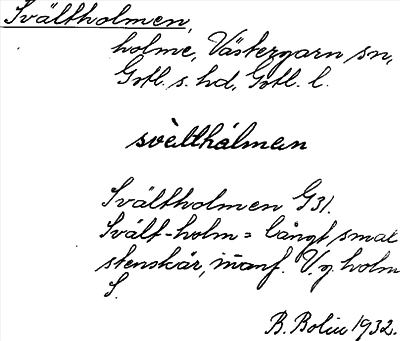 Svältholmen,
holme, Västergarn sn,
Gotl. s. hd, Gotl. l.
svèlthålmən
Svältholmen G31.
Svält-holm = långt, smalt
stenskär, V. g. holm
S.
B. Bolin 1932.